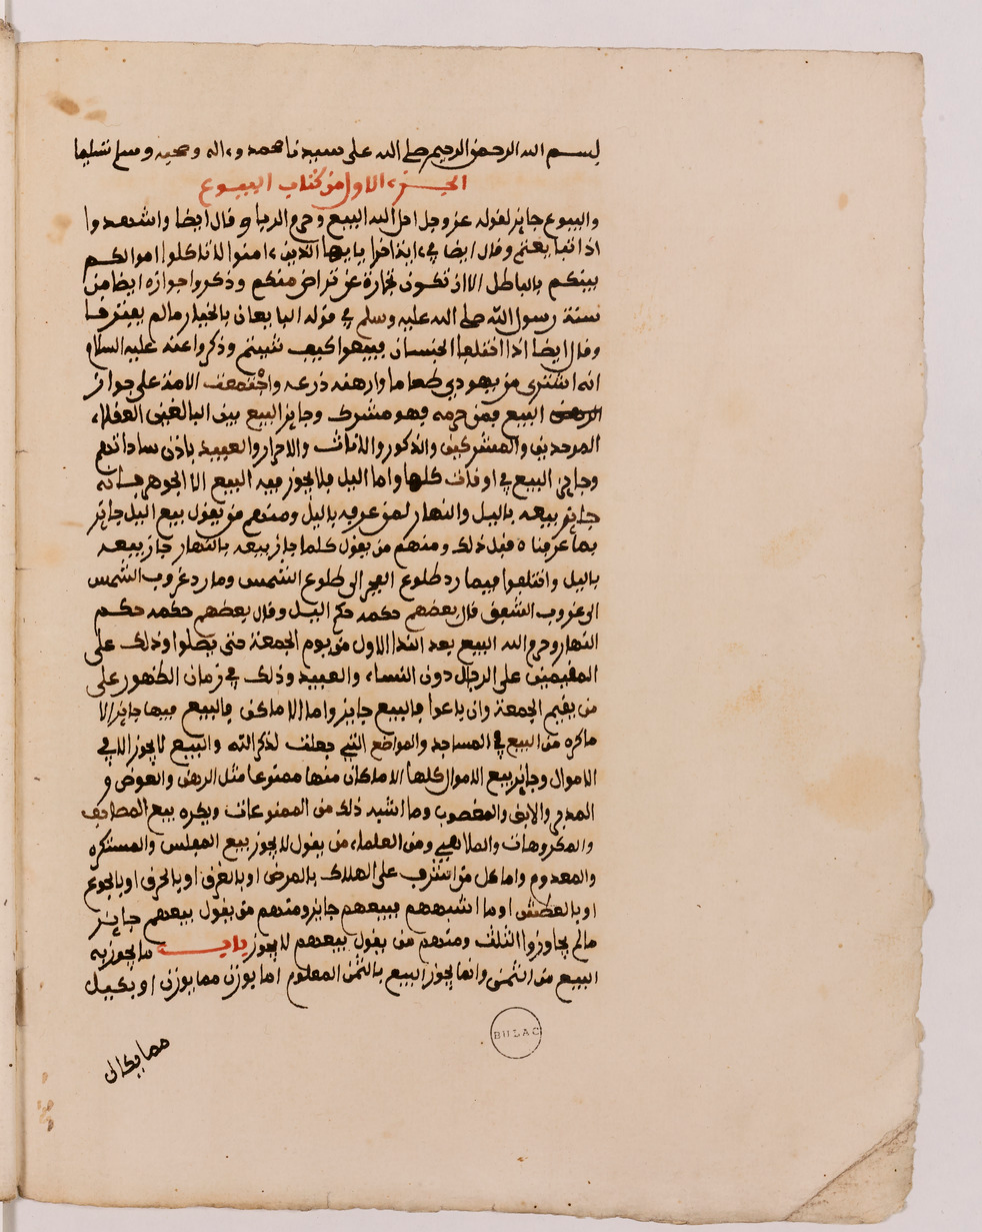 بسم الله الرحمن الرحيم صلى الله على سيدنا محمد وءاله وصحبه وسلم تسليما
الجزء الاول من كتاب البيوع
والبيوع جايز لقوله عز وجل احل الله البيع وحرم الربا وقال ايضا واشهدوا
اذا تبايعتم وقال ايضا في ءاية اخرا يايها الذين ءامنوا لا تاكلوا اموالكم
بينكم بالباطل الا ان تكون تجارة عن تراض منكم وذكروا جوازه ايضا من
سنة رسول الله صلى الله عليه وسلم في قوله البايعان بالخيار ما لم يفترقا
وقال ايضا اذا اختلفا الجنسان فبيعوا كيف شيتم وذكروا عنه عليه السلام
انه اشترى من يهودي طعاما وارهنه ذرعه واجتمعت الامة على جواز
البيع فمن حرمه فهو مشرك وجايز البيع بين البالغين العقلاء
الموحدين والمشركين والذكور والاناث والاحرار والعبيد باذن ساداتهم
وجايز البيع في اوقات كلها واما اليل فلا يجوز فيه البيع الا الجوهر فانه
جايز بيعه باليل والنهار لمن عرفه باليل ومنهم من يقول بيع اليل جايز
بما عرفناه قبل ذلك ومنهم من يقول كلما جاز بيعه بالنهار جاز بيعه
باليل واختلفوا فيما رد طلوع الفجر الى طلوع الشمس وما رد غروب الشمس
الى غروب الشفق قال بعضهم حكمه حكم اليل وقال بعضهم حكمه حكم
النهار وحرم الله البيع بعد الندا الاول من يوم الجمعة حتى يصلوا وذلك على
المقيمين على الرجال دون النساء والعبيد وذلك في زمان الظهور على
من يقيم الجمعة وان باعوا فالبيع جايز واما الاماكن فالبيع فيها جايز الا
ما كره من البيع في المساجد والمواضع التي جعلت لذكر الله والبيع لا يجوز الا في
الاموال وجايز بيع الاموال كلها الا ما كان منها ممنوعا مثل الرهن والعوض و
المدبر والابق والمغصوب وما اشبه ذلك من الممنوعات ويكره بيع المصاحف
والمكروهات والملاهي ومن العلماء من يقول لا يجوز بيع المفلس والمستكره
والمعدوم واما كل من اشرف على الهلاك بالمرض او بالغرق او بالحرق او بالجوع
او بالعطش او ما اشبههم فبيعهم جايز ومنهم من يقول بيعهم جايز
ما لم يجاوزوا الثلث ومنهم من يقول بيعهم لا يجوز باب ما يجوز به
البيع من الثمن وانما يجوز البيع بالثمن المعلوم اما بوزن مما يوزن او بكيل
مما يكال
BULAC